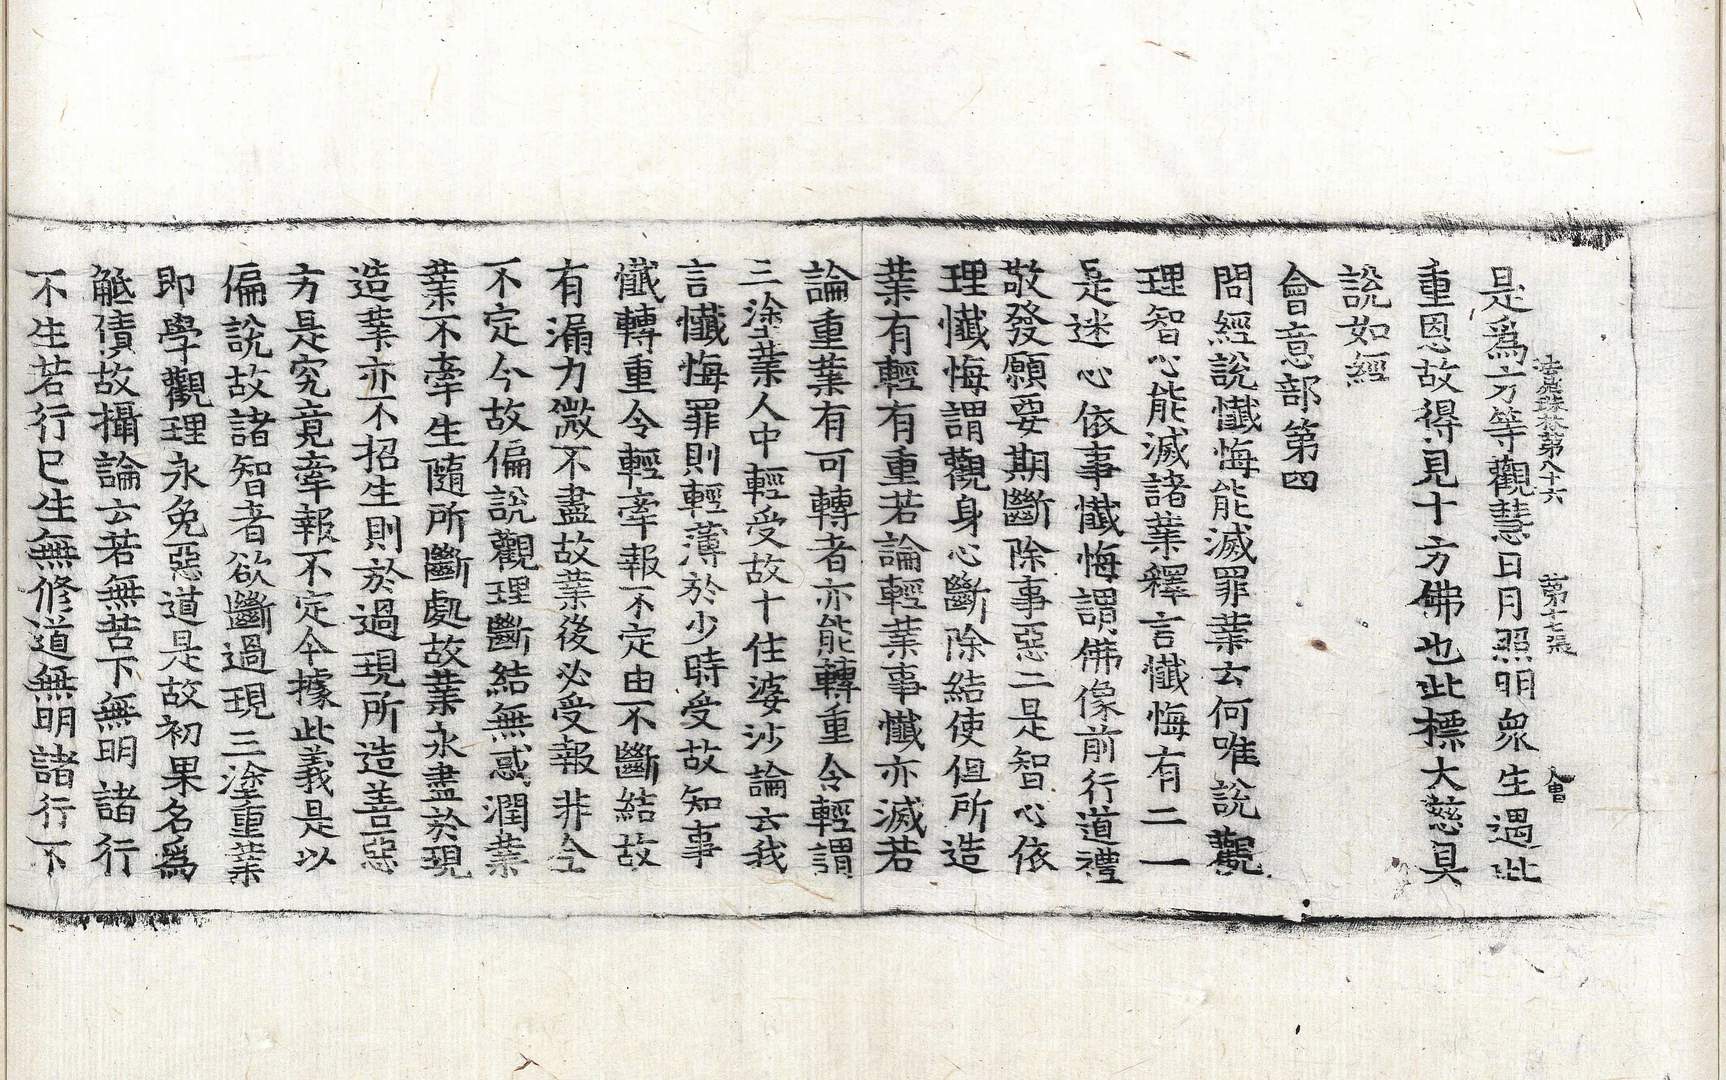 法苑珠林第八十六 第十七張 會
是爲方等觀慧日月照明衆生遇此
重恩故得見十方佛也此標大慈具
說如經
會意部第四
問經說懺悔能滅罪業云何唯說觀
理智心能滅諸業釋言懺悔有二一
是迷心依事懺悔謂佛像前行道禮
敬發願要期斷除事惡二是智心依
理懺悔謂觀身心斷除結使但所造
業有輕有重若論輕業事懺亦滅若
論重業有可轉者亦能轉重令輕謂
三塗業人中輕受故十住婆沙論云我
言懺悔罪則輕薄於少時受故知事
懺轉重令輕牽報不定由不斷結故
有漏力微不盡故業後必受報非令
不定今故偏說觀理斷結無惑潤業
業不牽生隨所斷處故業永盡於現
造業亦不招生則於過現所造善惡
方是究竟牽報不定今據此義是以
偏說故諸智者欲斷過現三塗重業
即學觀理永免惡道是故初果名爲
觝債故攝論云若無苦下無明諸行
不生若行已生無修道無明諸行不